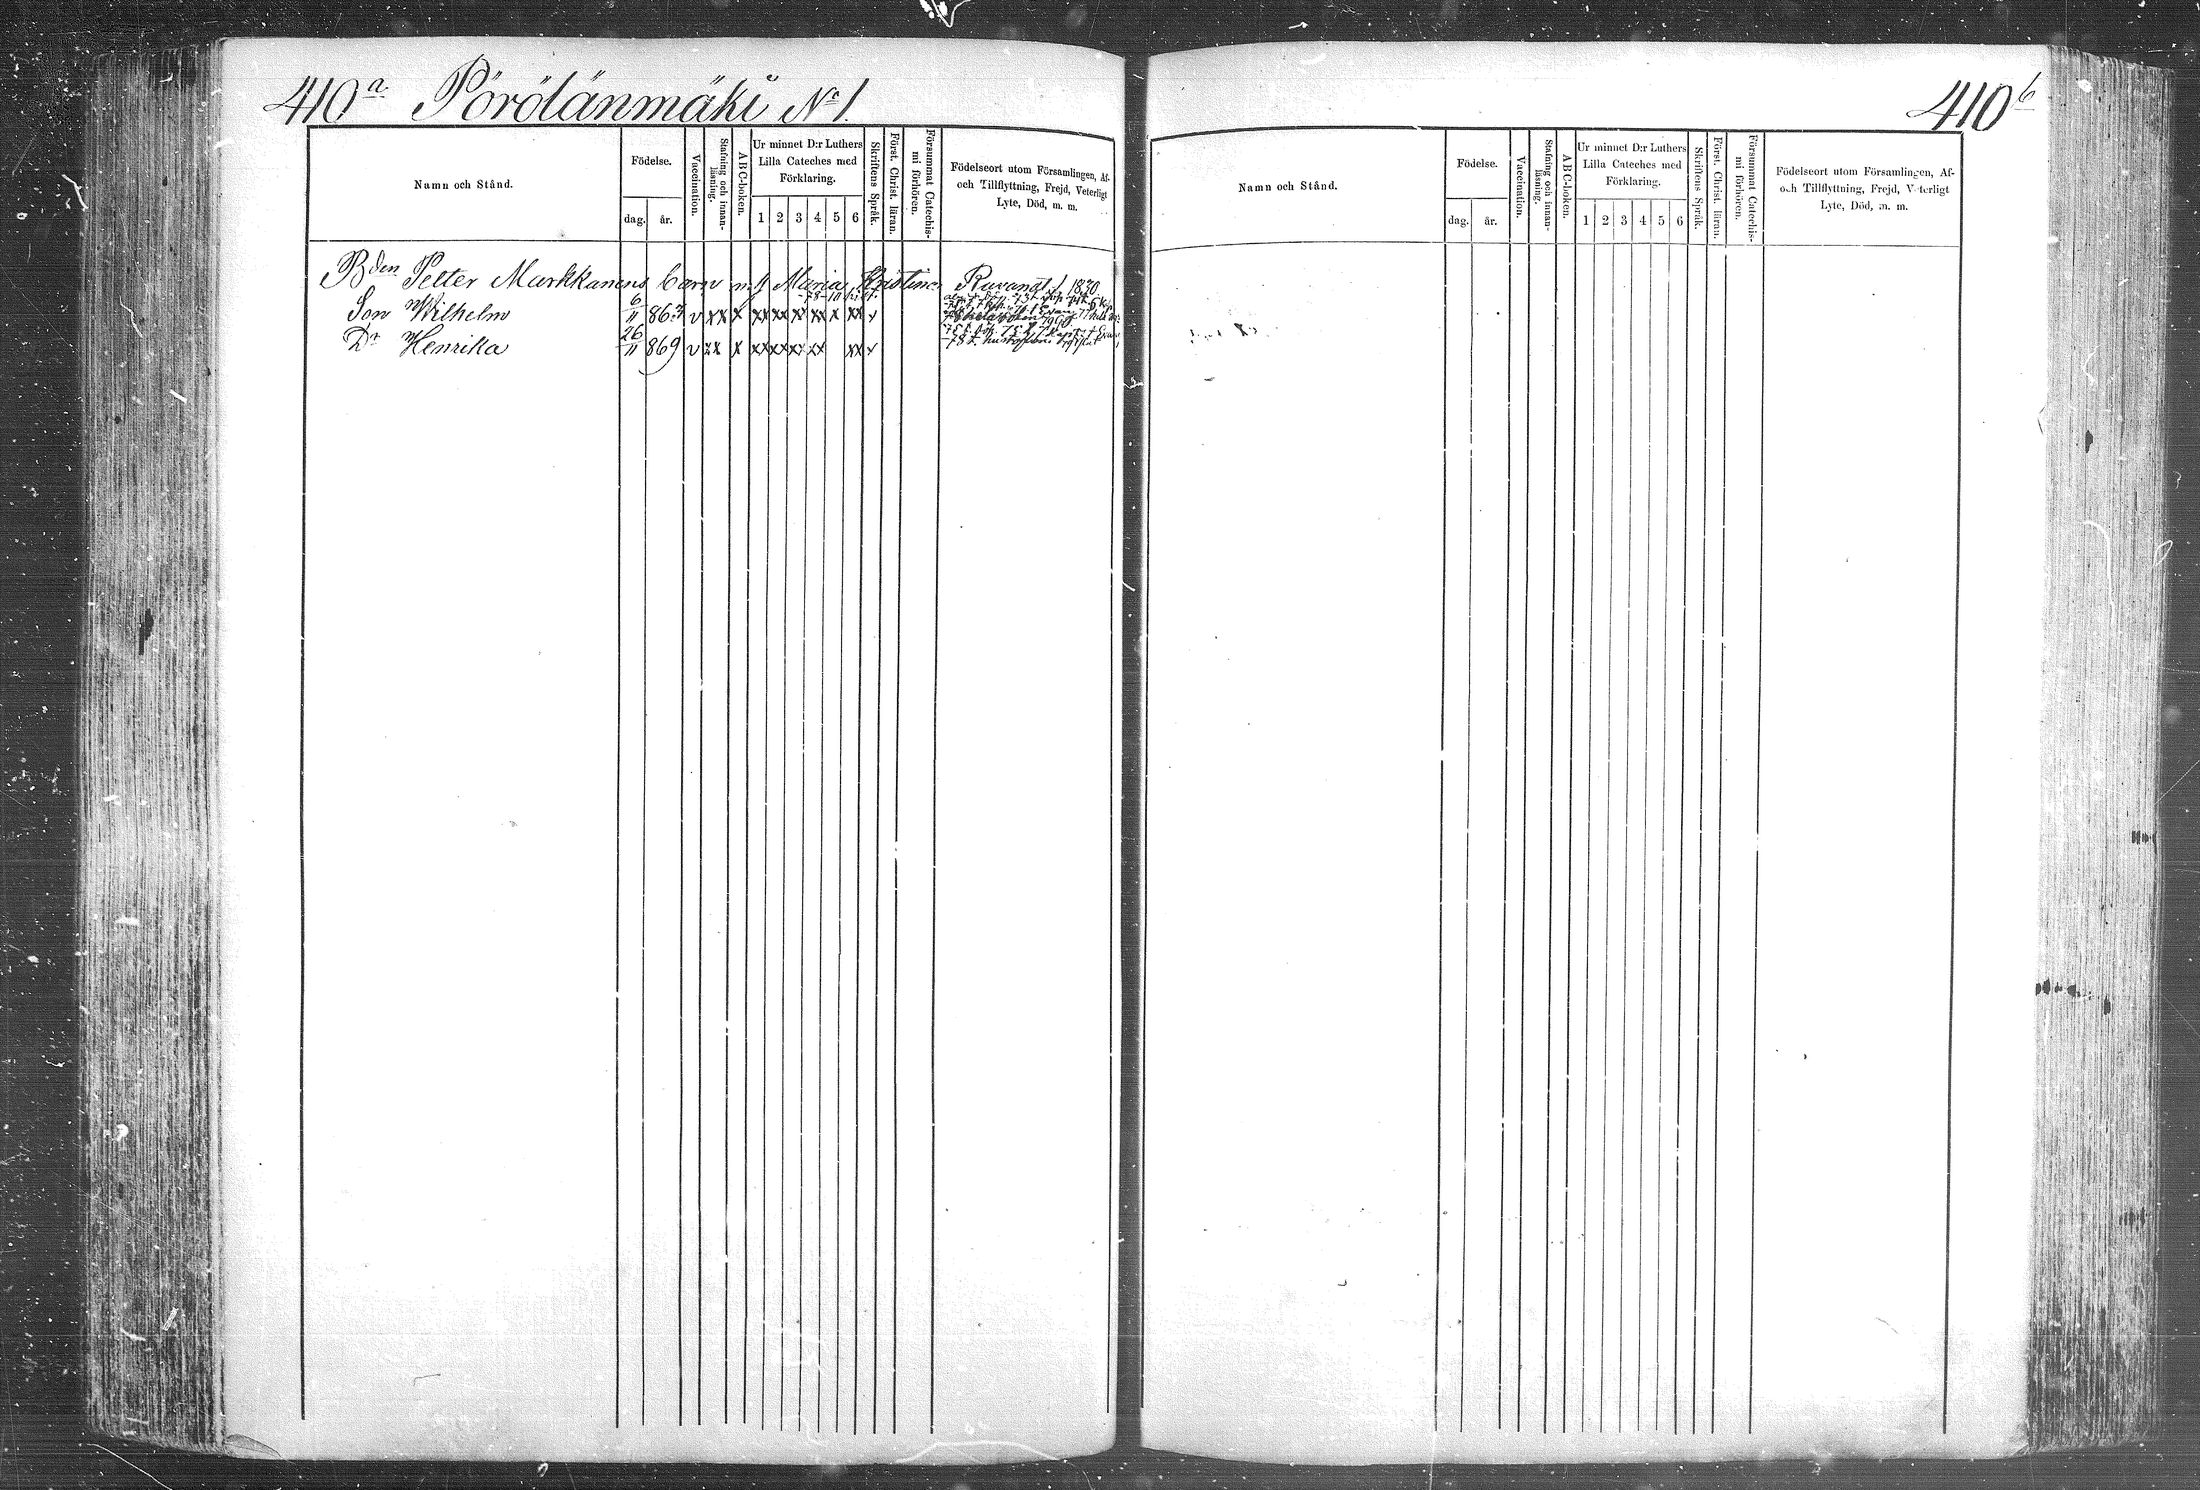 410a Pörölänmäki No 1.
Namn och Stånd.
Födelse.
dag. år.
Vaccination.
Stafning och innan-
läsning.
ABC-boken.
Ur minnet D:r Luthers
Lilla Cateches med
Förklaring.
1 2 3 4 5 6
Skriftens Språk.
Först. Christ. läran.
Försummat Catechis-
mi förhören.
Födelseort utom Församlingen, Af-
och Tillflyttning, Frejd, Veterligt
Lyte, Död, m. m.
Bden Petter Markkanens barn m. Maria Kristina 1830
Son Wilhelm 6/11 867 v xx x xx xx xx xx x xx x
Dr Henrika 26/11 869 v xx x xx xx xx xx xx x
410b
Namn och Stånd.
Födelse.
dag. år.
Vaccination.
Stafning och innan-
läsning.
ABC-boken.
Ur minnet D:r Luthers
Lilla Cateches med
Förklaring.
1 2 3 4 5 6
Skriftens Språk.
Först. Christ. läran.
Försummat Catechis-
mi förhören.
Födelseort utom Församlingen, Af-
och Tillflyttning, Frejd, Veterligt
Lyte, Död, m. m.